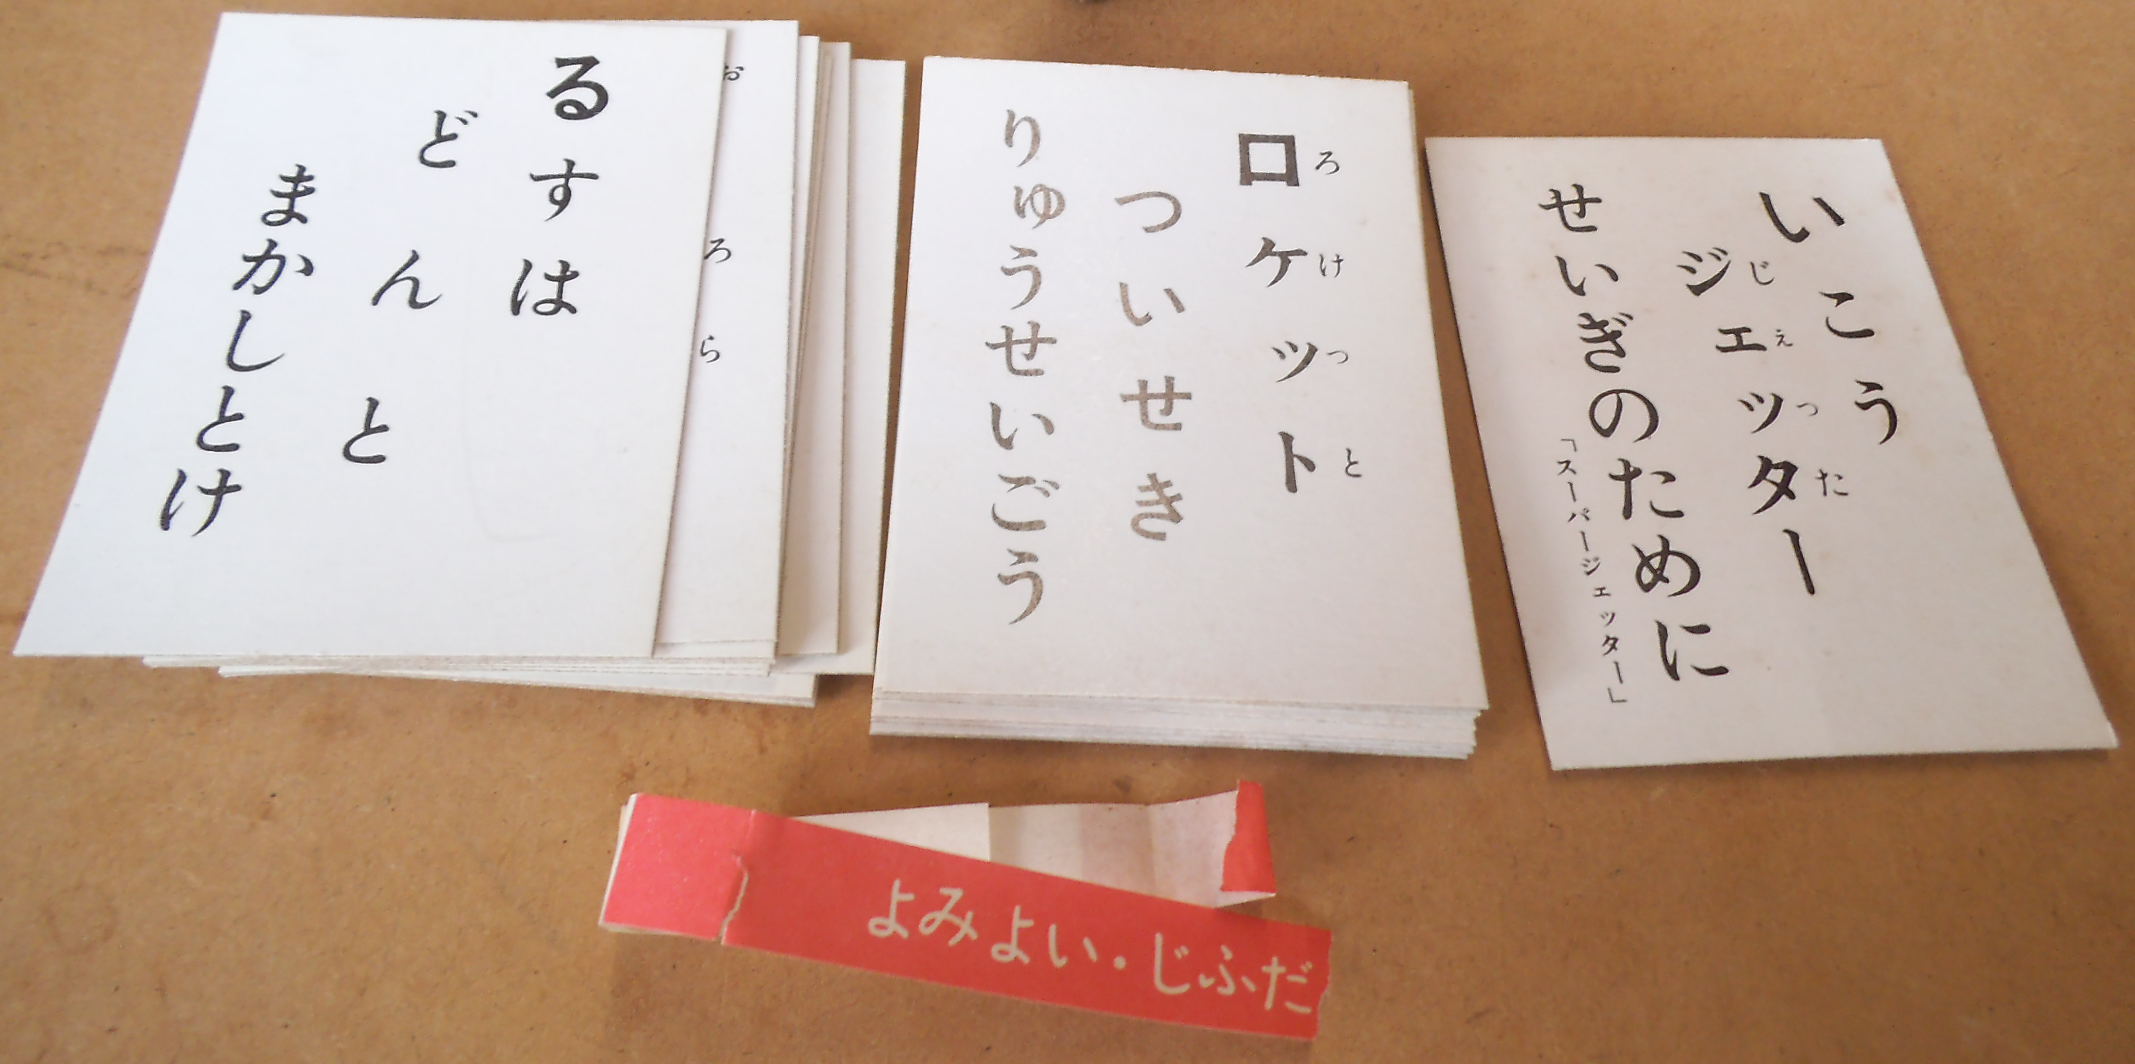 いこう
ジェッター
じえつた
せいぎのために
「スーパージェッター」
ロケット
ろけつと
ついせき
りゅうせいごう
るすは
どんと
まかしとけ
お
ろ
ら
よみよい・じふだ